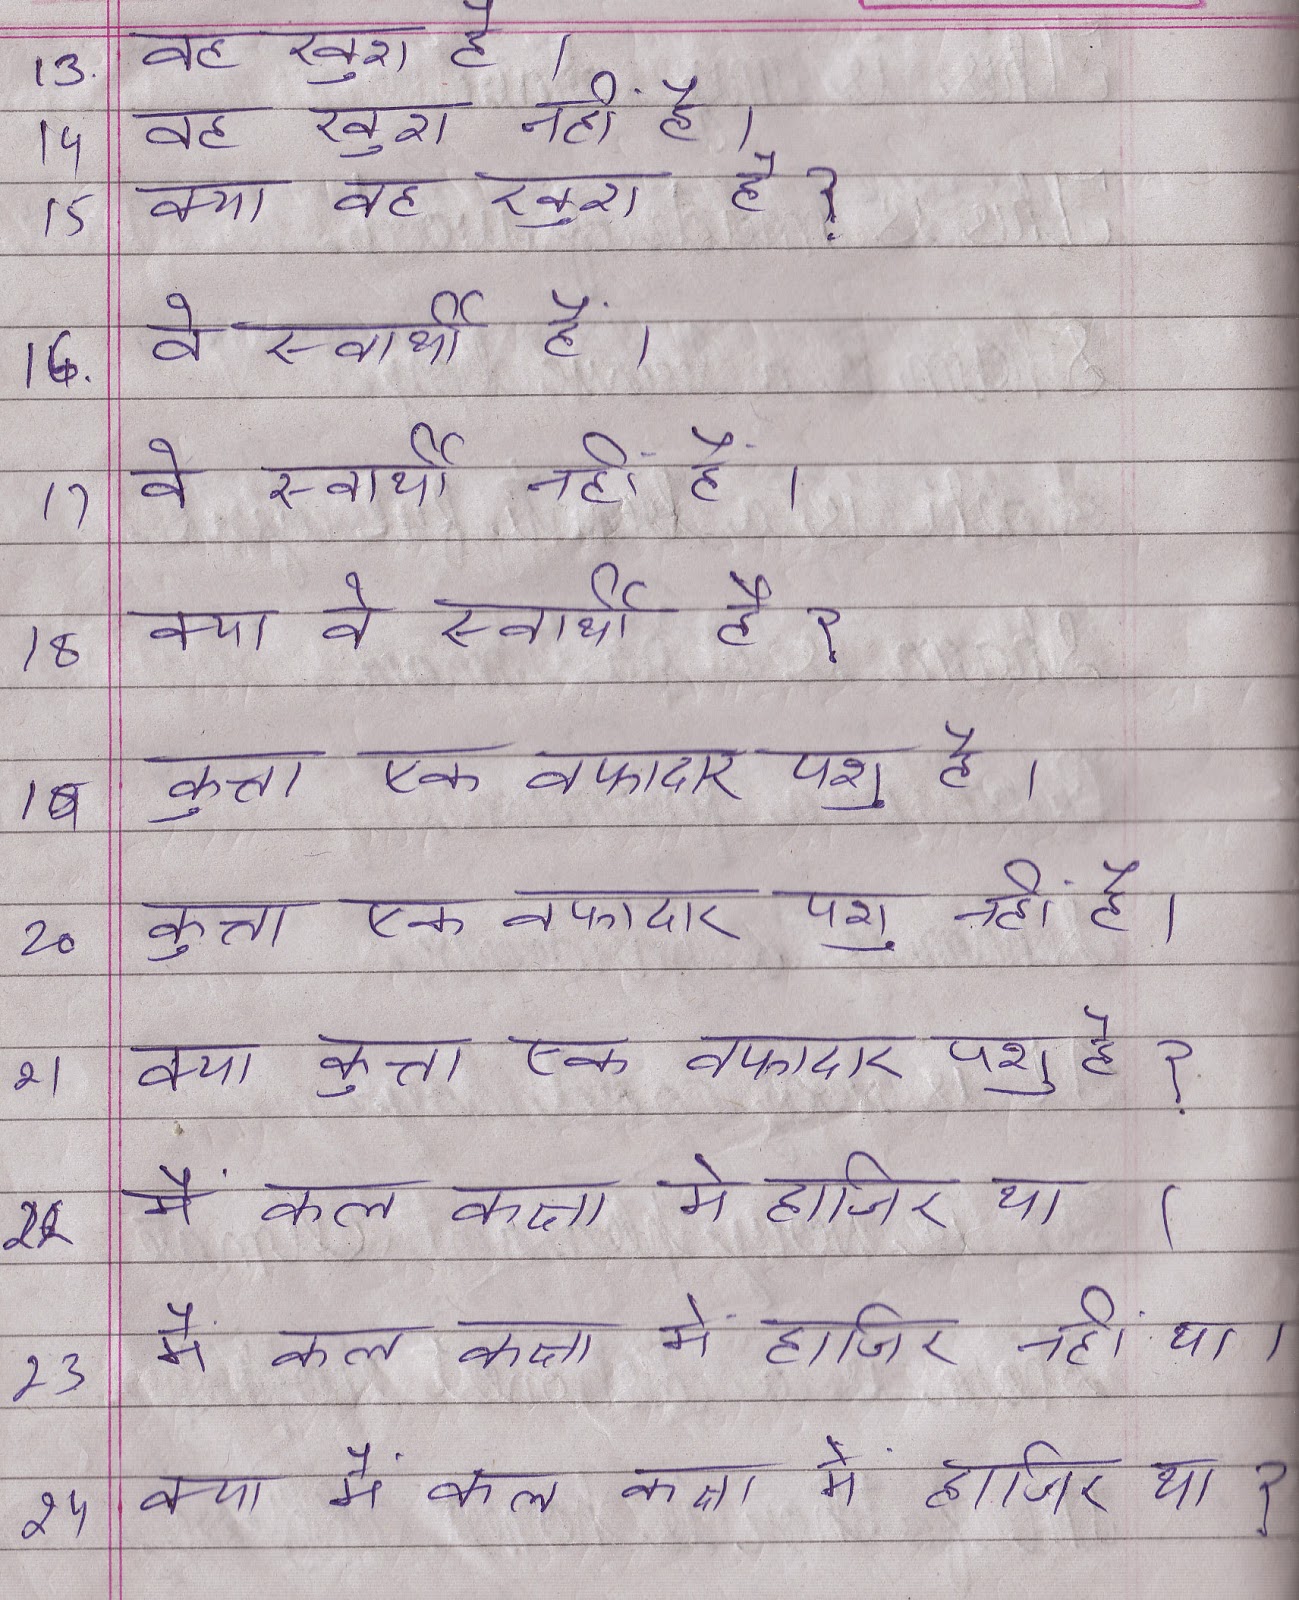 13. वह खुश है ।
14 वह खुश नहीं है ।
15 क्या वह खुश है ?
16. वे स्वार्थी हैं ।
17 वे स्वार्थी नहीं हैं ।
18 क्या वे स्वार्थी है ?
19 कुत्ता एक वफादार पशु है ।
20 कुत्ता एक वफादार पशु नहीं है ।
21 क्या कुत्ता एक वफादार पशु है ?
22 मैं कल कक्षा मे हाजिर था ।
23 मैं कल कक्षा में हाजिर नहीं था ।
24 क्या मैं कल कक्षा में हाजिर था ?